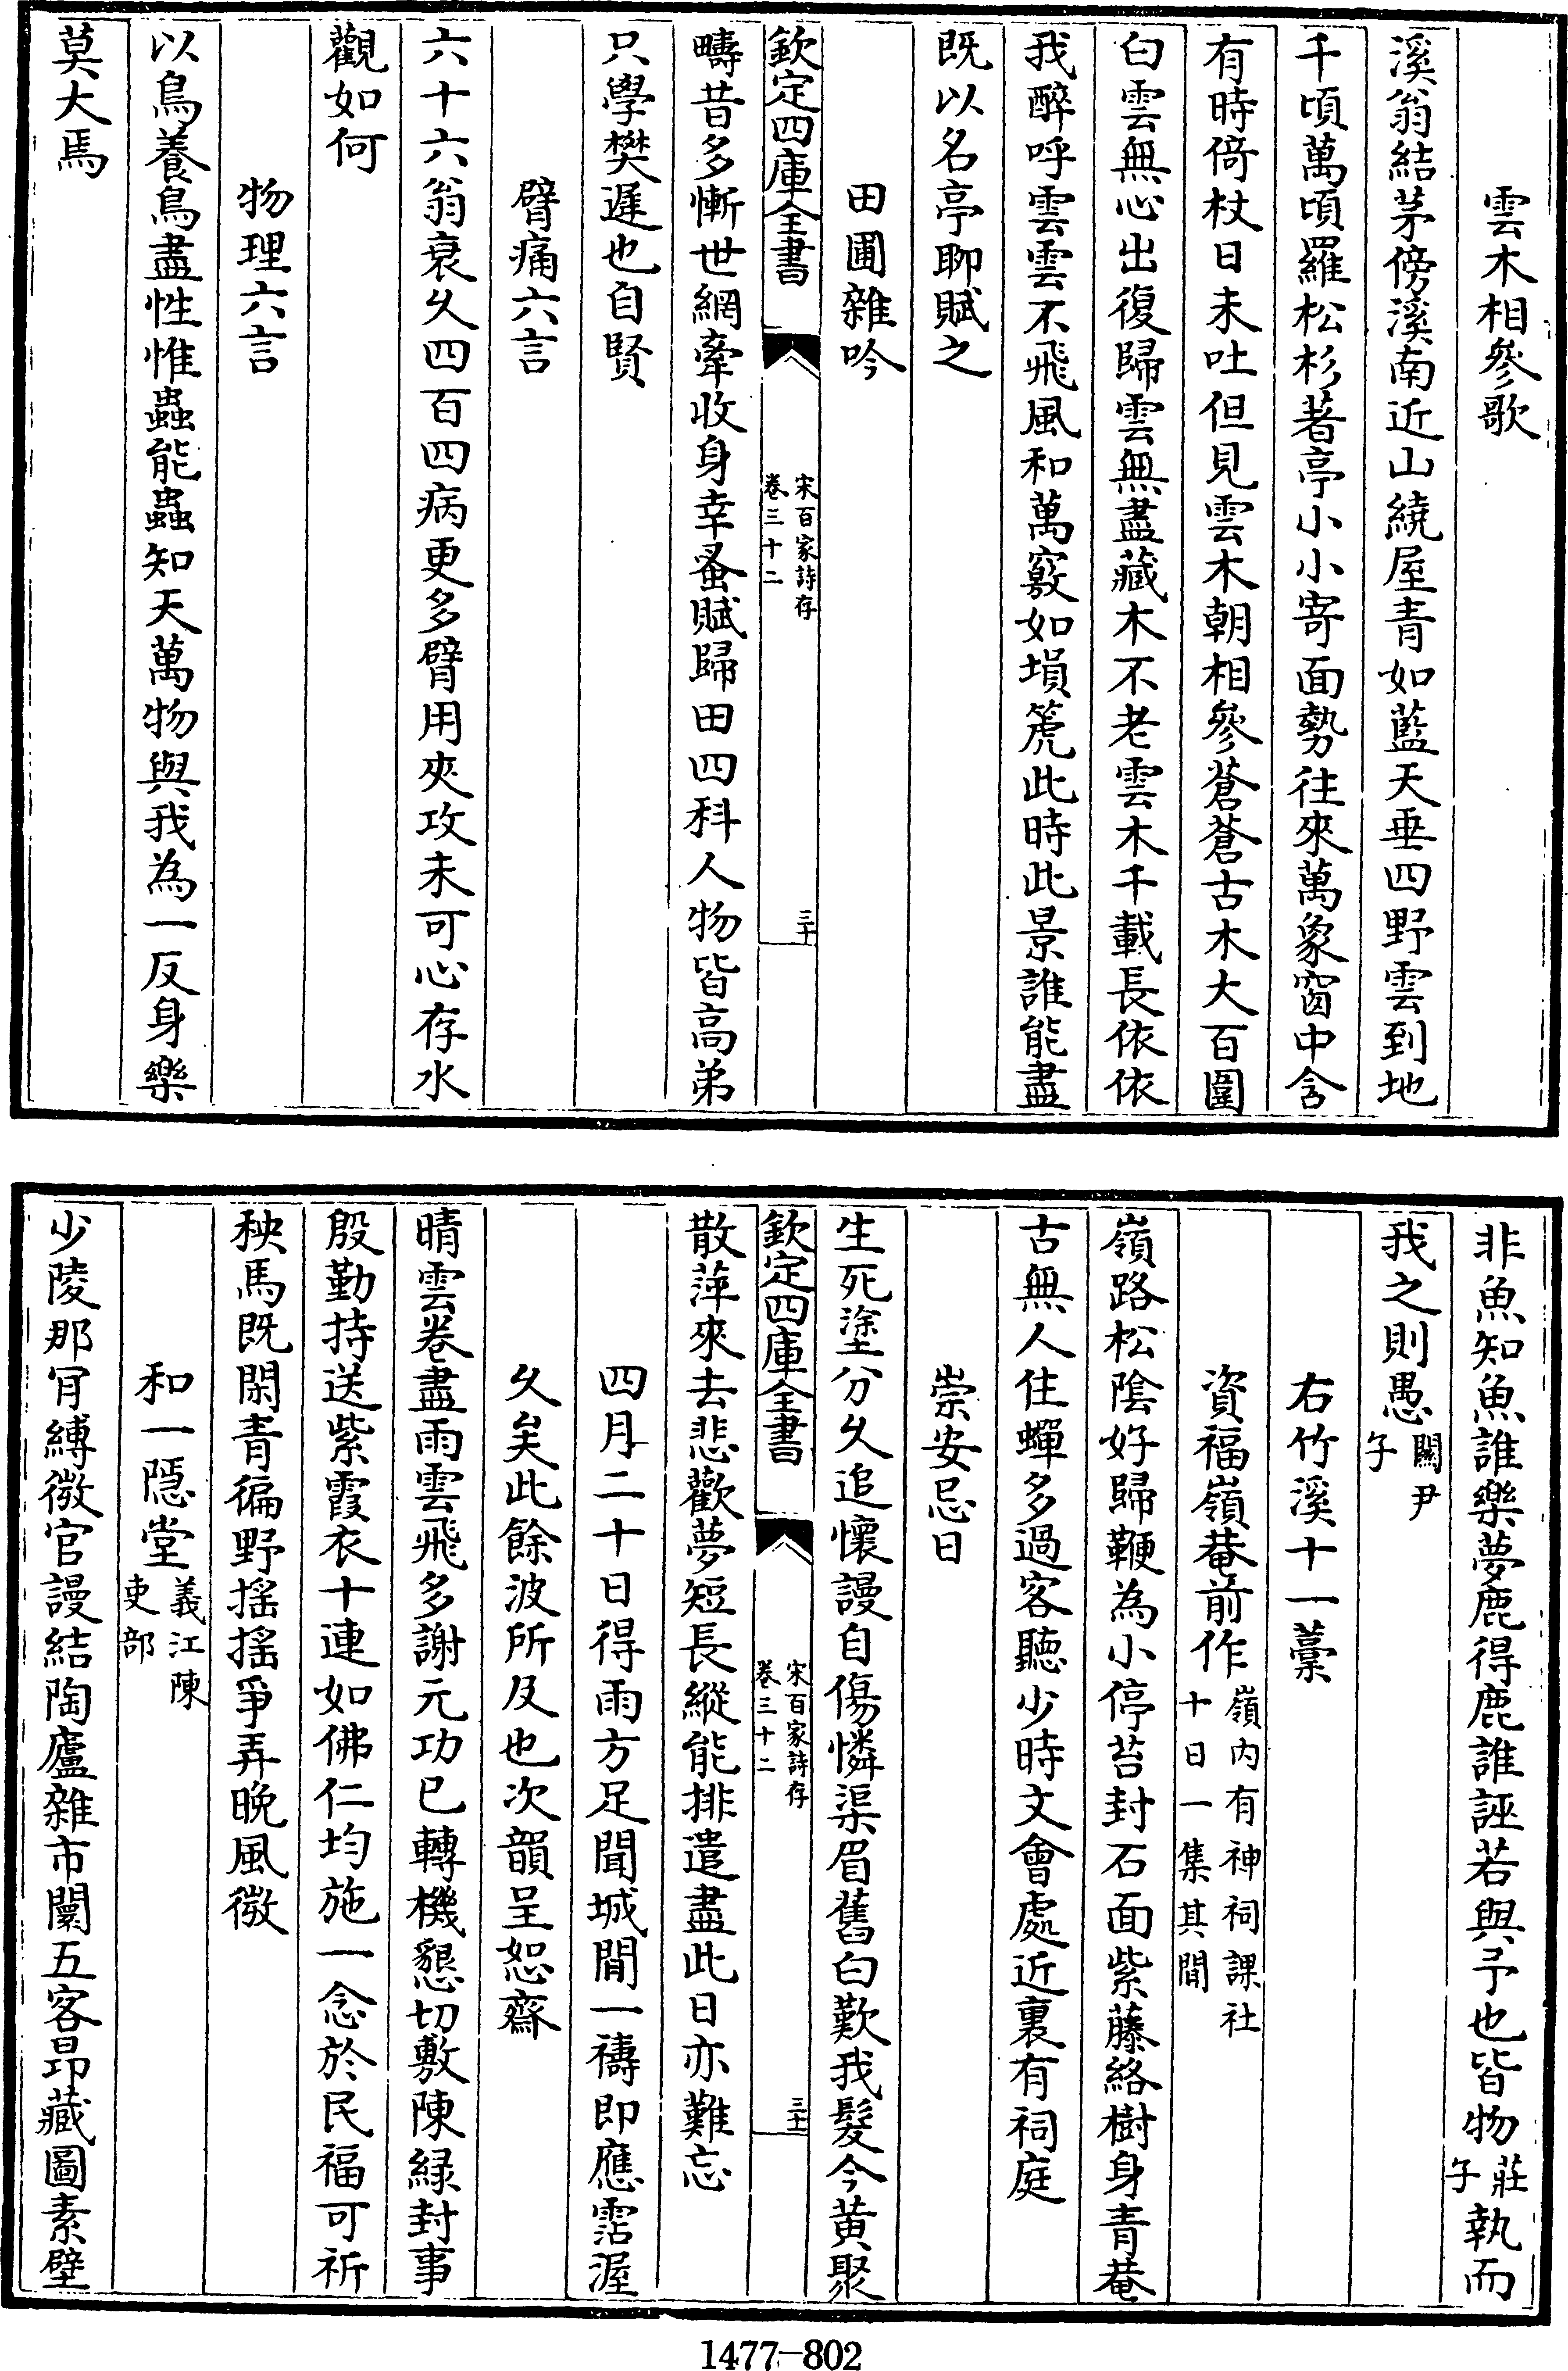 雲木相參歌
溪翁結茅傍溪南近山繞屋青如藍天垂四野雲到地
千頃萬頃羅松杉著亭小小寄面勢往來萬象窗中含
有時倚杖日未吐但見雲木朝相參蒼蒼古木大百圍
白雲無心出復歸雲無盡藏木不老雲木千載長依依
我醉呼雲雲不飛風和萬竅如塤箎此時此景誰能盡
既以名亭聊賦之
田圃雜吟
欽定四庫全書
宋百家詩存
卷三十二
三十
疇昔多慚世網牽收身幸蚤賦歸田四科人物皆高弟
只學樊遲也自賢
臂痛六言
六十六翁衰久四百四病更多臂用夾攻未可心存水
觀如何
物理六言
以鳥養鳥盡性惟蟲能蟲知天萬物與我為一反身樂
莫大焉
非魚知魚誰樂夢鹿得鹿誰誣若與予也皆物莊子執而
我之則愚關尹子
右竹溪十一藁
資福嶺菴前作嶺内有神祠課社十日一集其間
嶺路松陰好歸鞭為小停苔封石面紫藤絡樹身青菴
古無人住蟬多過客聽少時文會處近裏有祠庭
崇安忌日
生死塗分久追懷謾自傷憐渠眉舊白歎我髮今黃聚
欽定四庫全書
宋百家詩存
卷三十二
三十一
散萍來去悲歡夢短長縱能排遣盡此日亦難忘
四月二十日得雨方足聞城間一禱即應霑渥
久矣此餘波所及也次韻呈恕齋
晴雲卷盡雨雲飛多謝元功已轉機懇切敷陳緑封事
殷勤持送紫霞衣十連如佛仁均施一念於民福可祈
秧馬既閑青徧野搖搖爭弄晚風微
和一隱堂義江陳吏部
少陵那肎縛微官謾結陶廬雜市闤五客昂藏圖素壁
1477-802